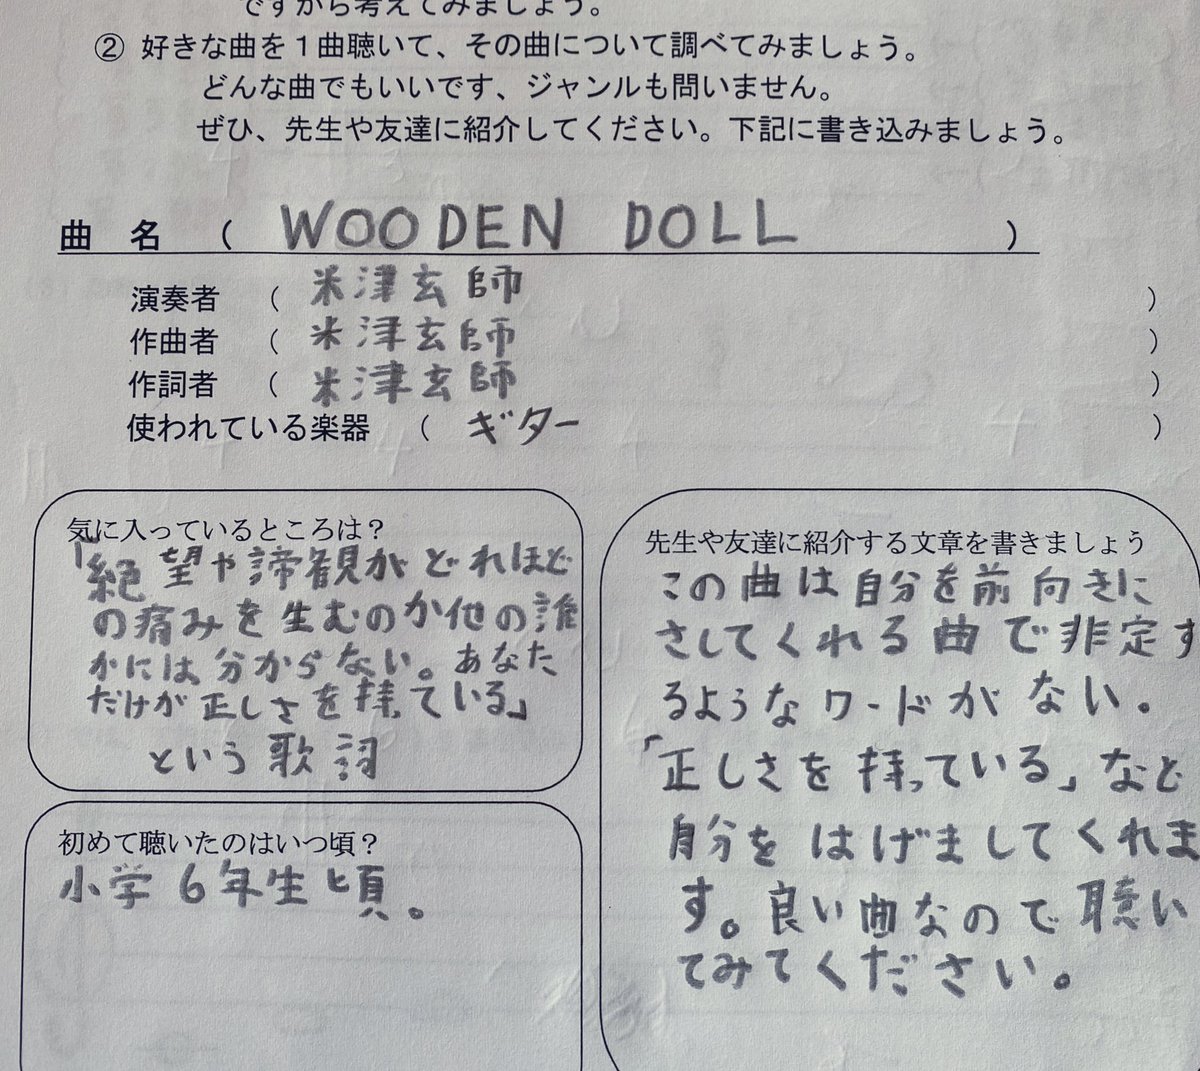 ですから考えてみましょう。
② 好きな曲を1曲聴いて、その曲について調べてみましょう。
どんな曲でもいいです、ジャンルも問いません。
ぜひ、先生や友達に紹介してください。下記に書き込みましょう。
曲 名 （ WOODEN DOLL ）
演奏者 （ 米津玄師 ）
作曲者 （ 米津玄師 ）
作詞者 （ 米津玄師 ）
使われている楽器 （ ギター ）
気に入っているところは？
「絶望や諦観がどれほど
の痛みを生むのか他の誰
かには分からない。あなた
だけが正しさを持っている」
という歌詞
初めて聴いたのはいつ頃？
小学6年生頃。
先生や友達に紹介する文章を書きましょう
この曲は自分を前向きに
さしてくれる曲で非定す
るようなワードがない。
「正しさを持っている」など
自分をはげましてくれま
す。良い曲なので聴い
てみてください。